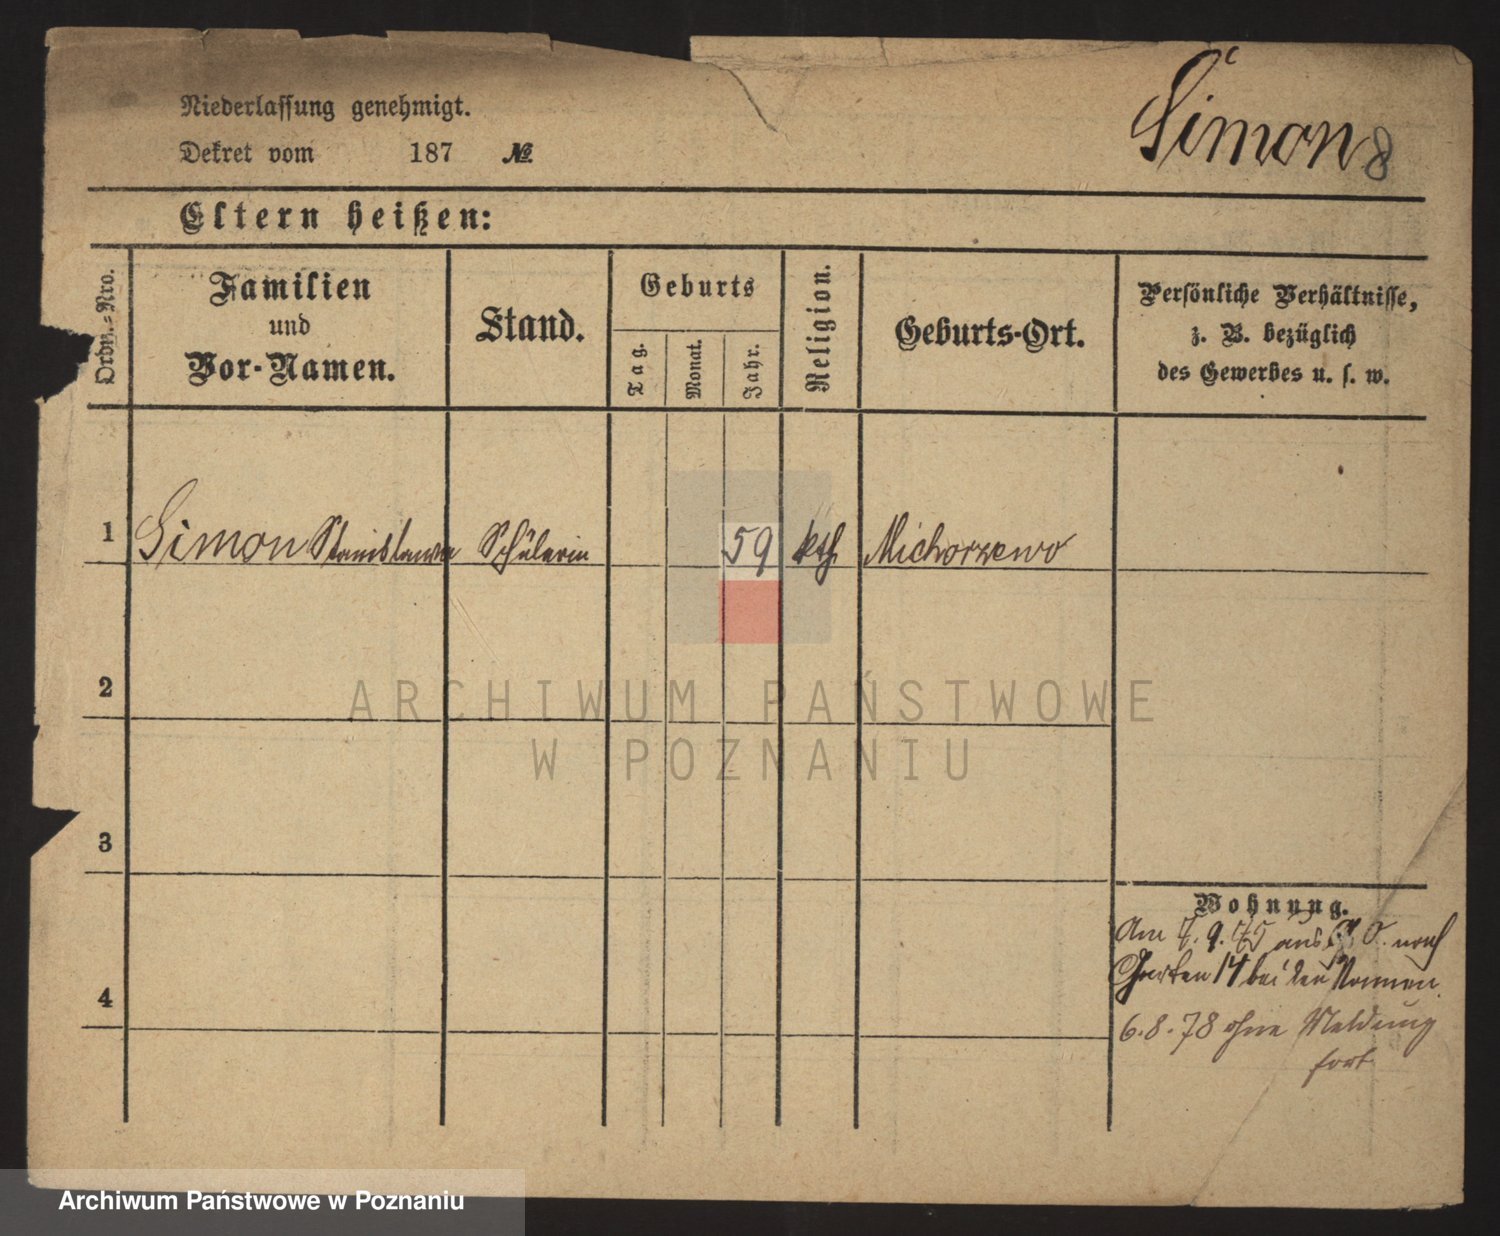 Niederlassung genehmigt.
Dekret vom 187 №
Simon 8
Eltern heißen:
Ordn.-Nro.
Familien
und
Vor-Namen.
Stand.
Geburts
Tag.
Monat.
Jahr.
Religion.
Geburts-Ort.
Persönliche Verhältnisse,
z. B. bezüglich
des Gewerbes u. s. w.
1 Simon Stanislawa Schülerin 59 kth Michorzewo
2
ARCHIWUM PAŃSTWOWE
W POZNANIU
3
4
Wohnung.
Am 7. 9. 75 aus O. nach
Garten 14 bei den Nonnen.
6. 8. 78 ohne Meldung
fort
Archiwum Państwowe w Poznaniu